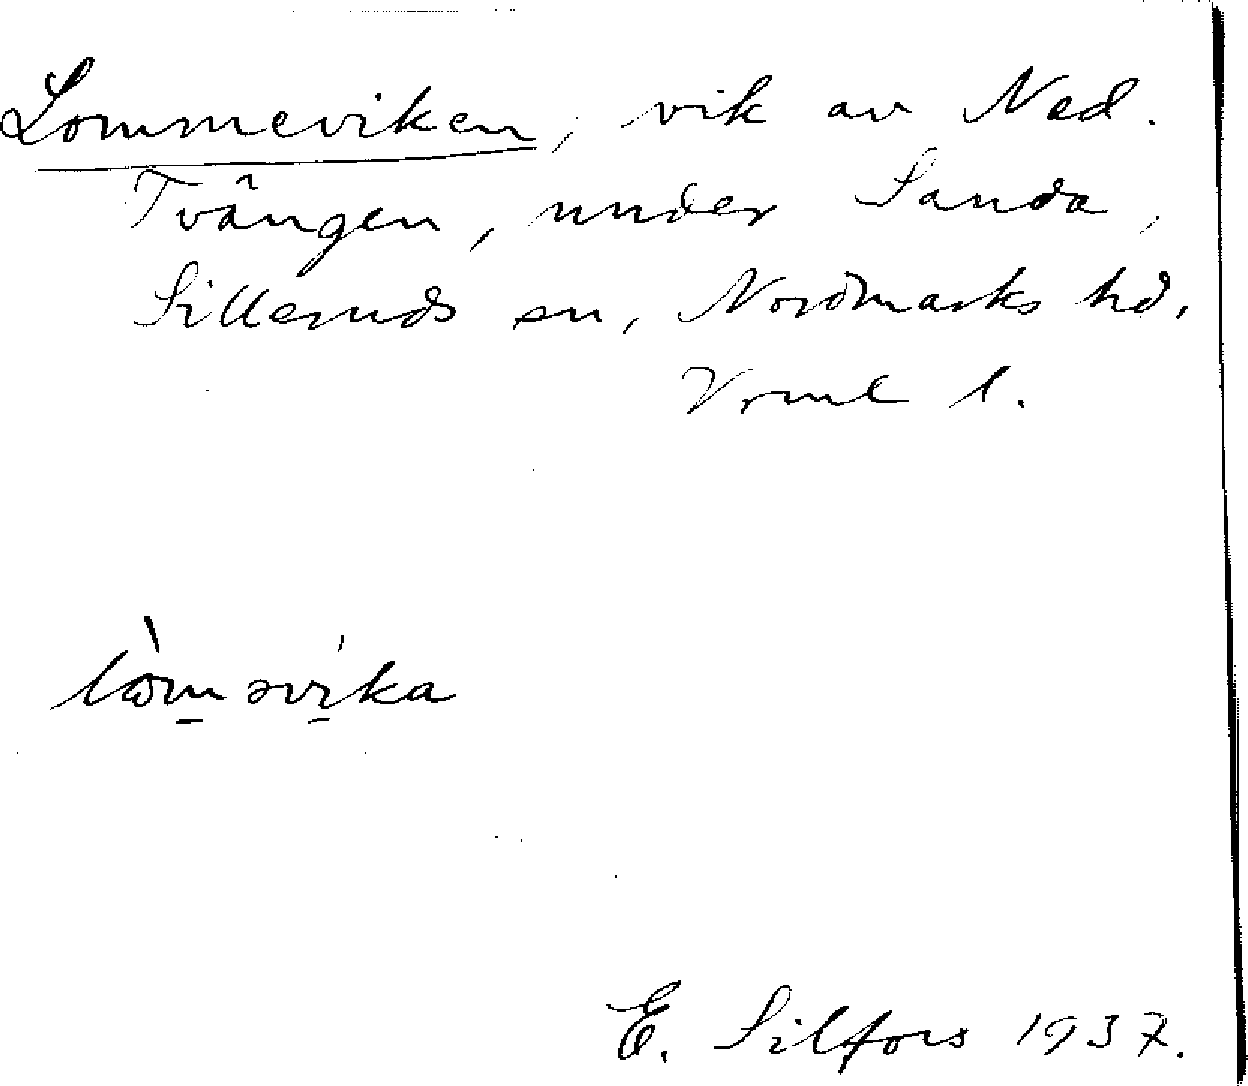 Lommeviken, vik av Ned.
Tvängen, under Sanda,
Silleruds sn, Nordmarks hd,
Vrml l.
lòməvika
E. Silfors 1937.